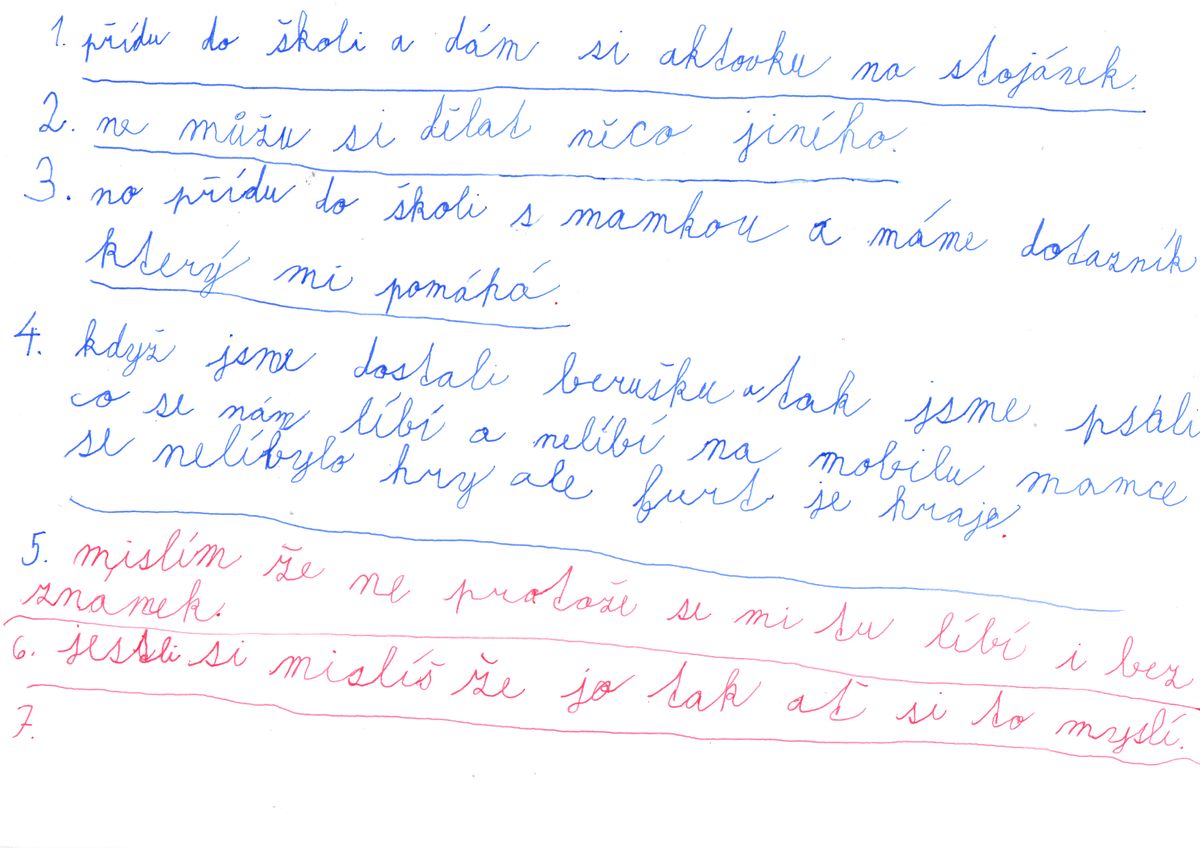 1. přídu do školi a dám si aktovku na stojánek.
2. ne můžu si dělat něco jiného.
3. no přídu do školi s mamkou a máme dotazník
který mi pomáhá.
4. když jsme dostali berušku a tak jsme psali
co se nám líbí a nelíbí na mobilu mamce
se nelíbylo hry ale furt je hraje.
5. mislím že ne protože se mi tu líbí i bez
známek.
6. jestli si mislíš že jo tak ať si to myslí.
7.